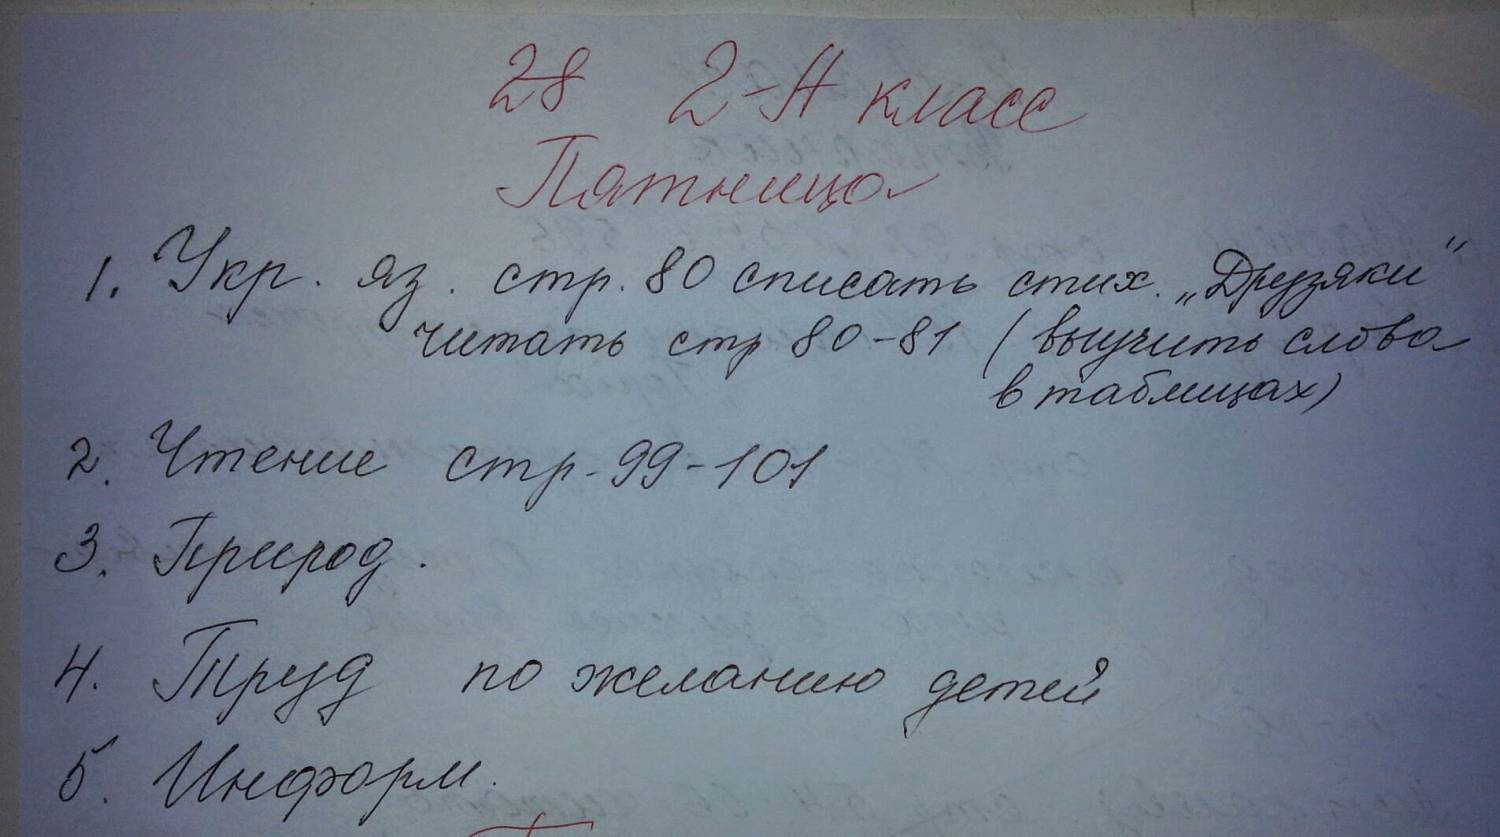 28 2-А класс
Пятница
1. Укр. яз. стр. 80 списать стих. „Друзяки"
читать стр 80-81 (выучить слова
в таблицах)
2. Чтение стр. 99-101
3. Природ.
4. Труд по желанию детей
5. Информ.